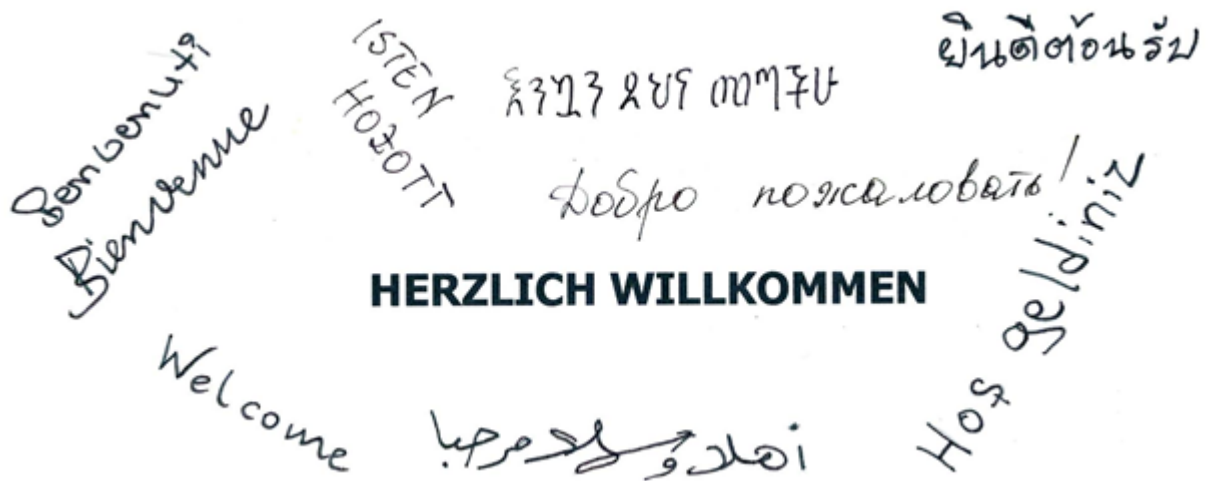 Benvenuti
Bienvenue
ISTEN
HOZOTT
እንኳን ደህና መጣችሁ
ยินดีต้อนรับ
Добро пожаловать!
HERZLICH WILLKOMMEN
Welcome
أهلا وسهلا مرحبا
Hoş geldiniz